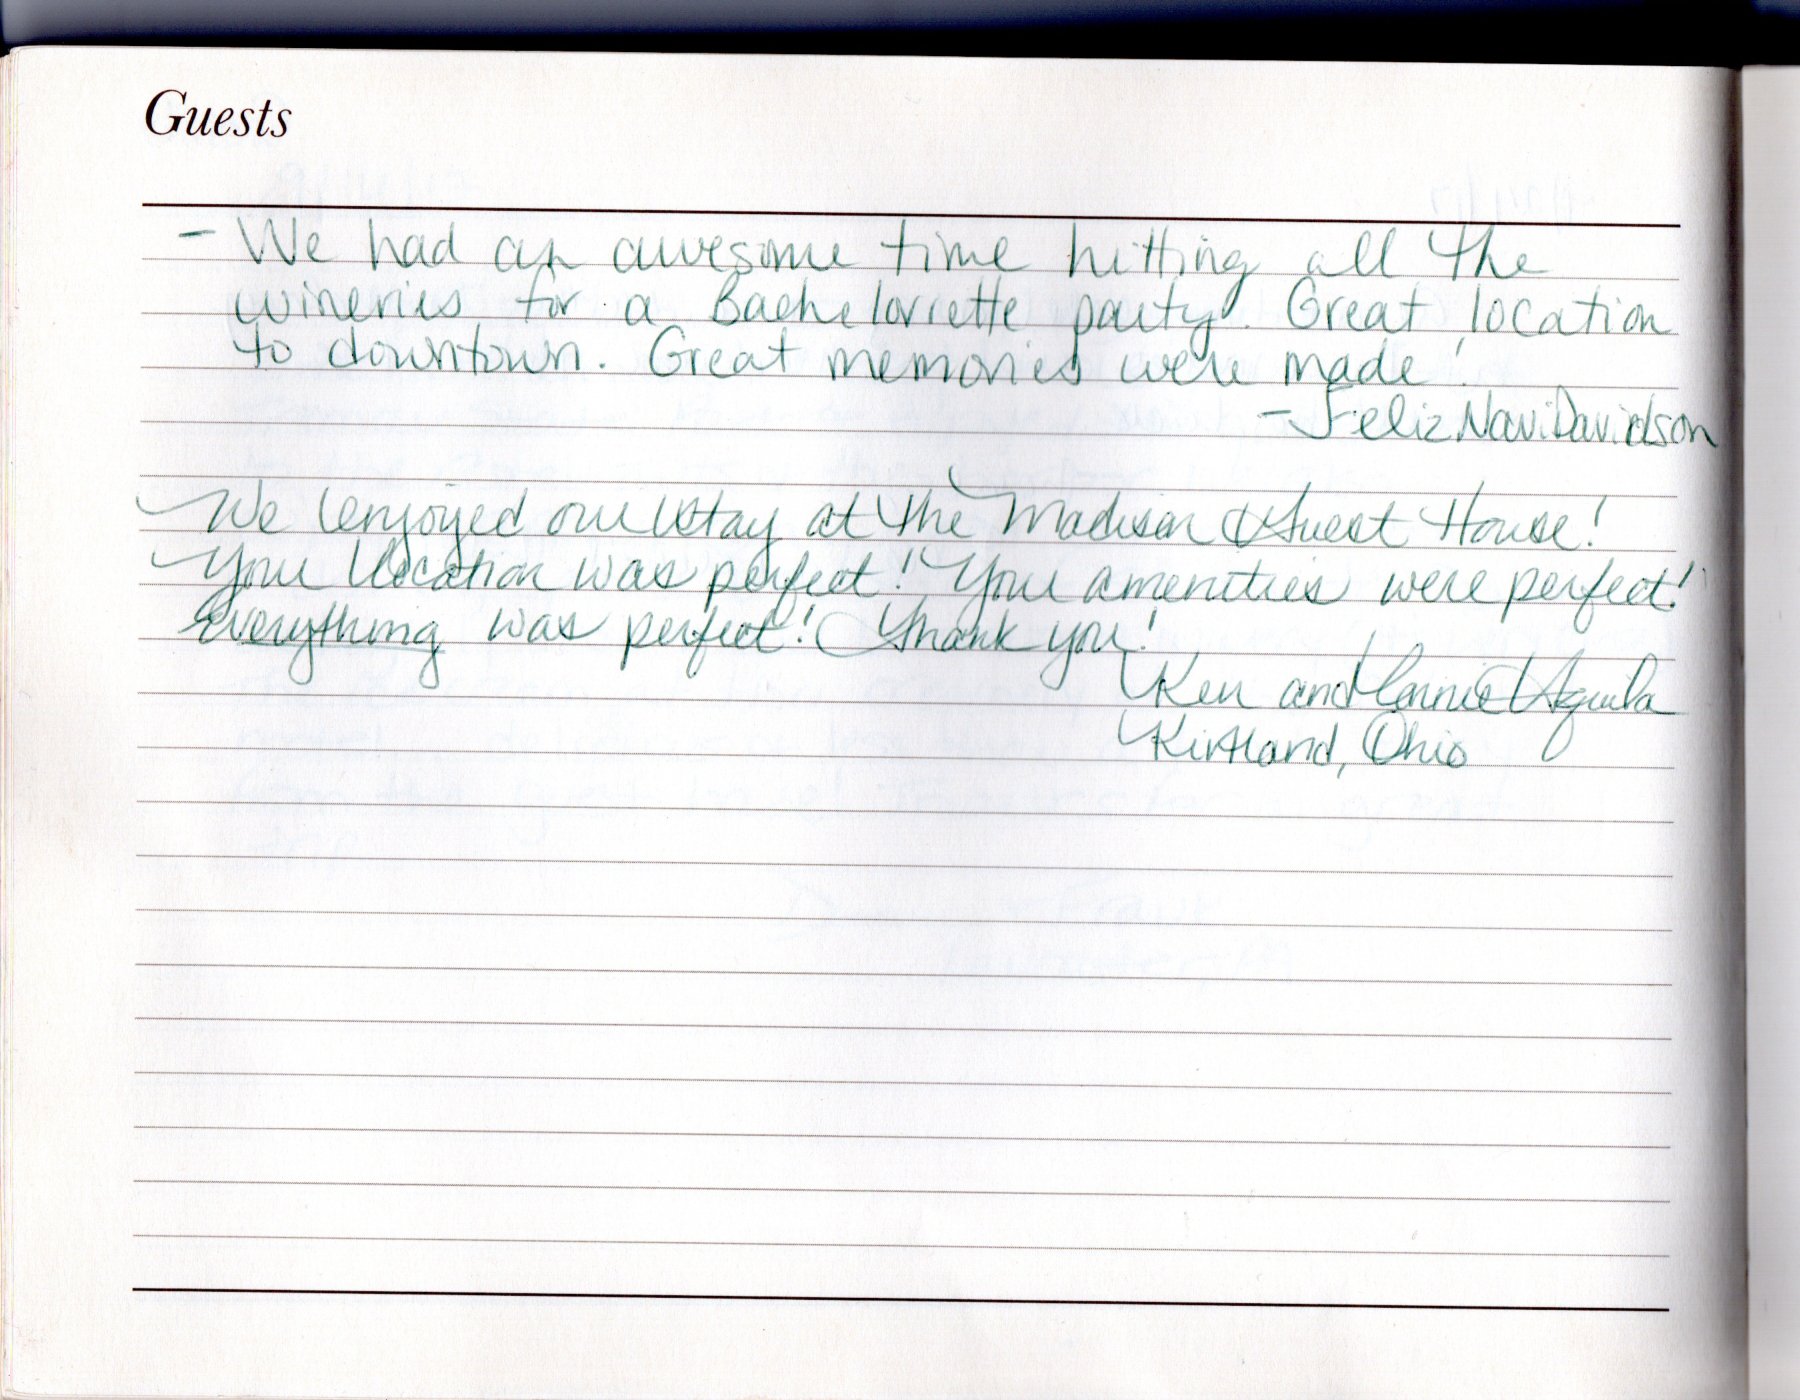 Guests
- We had an awesome time hitting all the
wineries for a Bachelorrette party. Great location
to downtown. Great memories were made!
- Feliz NaviDavidson
We enjoyed our stay at the Madison Guest House!
Your location was perfect! Your amenities were perfect!
Everything was perfect! Thank you!
Ken and Connie Aquila
Kirtland, Ohio